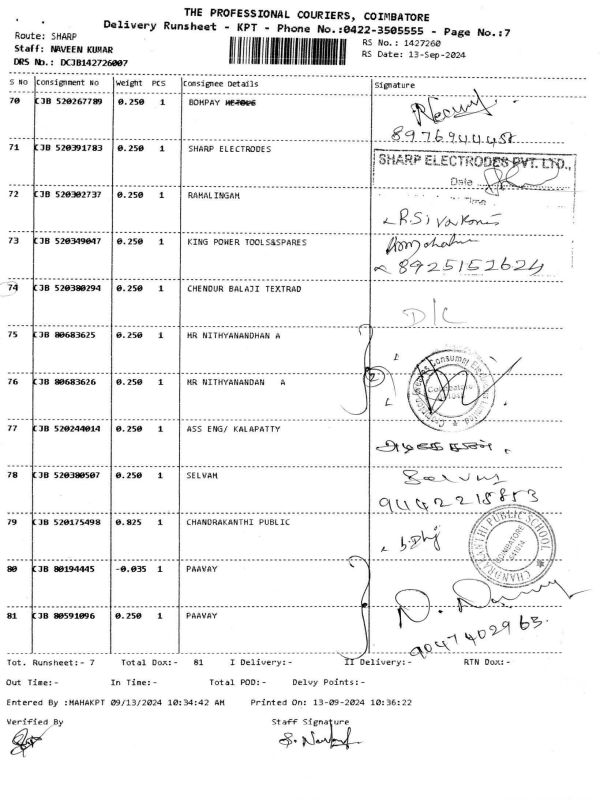 THE PROFESSIONAL COURIERS, COIMBATORE
Delivery Runsheet - KPT - Phone No.:0422-3505555 - Page No.:7
Route: SHARP
RS No.: 1427260
Staff: NAVEEN KUMAR
RS Date: 13-Sep-2024
DRS No.: DCJB142726007
S No Consignment No Weight PCS Consignee Details Signature
70 CJB 520267789 0.250 1 BOMPAY METOLS
8976944458
71 CJB 520391783 0.250 1 SHARP ELECTRODES
SHARP ELECTRODES PVT. LTD.,
Date
Time
72 CJB 520302737 0.250 1 RAMALINGAM
73 CJB 520349047 0.250 1 KING POWER TOOLS&SPARES
8925152624
74 CJB 520380294 0.250 1 CHENDUR BALAJI TEXTRAD
D/C
75 CJB 80683625 0.250 1 MR NITHYANANDHAN A
76 CJB 80683626 0.250 1 MR NITHYANANDAN A
2
77 CJB 520244014 0.250 1 ASS ENG/ KALAPATTY
78 CJB 520380507 0.250 1 SELVAM
Selvam
9442218853
79 CJB 520175498 0.825 1 CHANDRAKANTHI PUBLIC
CHANDRAKANTHI PUBLIC SCHOOL
COIMBATORE
80 CJB 80194445 -0.035 1 PAAVAY
81 CJB 80591096 0.250 1 PAAVAY
9047402965.
Tot. Runsheet:- 7 Total Dox:- 81 I Delivery:- II Delivery:- RTN Dox:-
Out Time:- In Time:- Total POD:- Delvy Points:-
Entered By :MAHAKPT 09/13/2024 10:34:42 AM Printed On: 13-09-2024 10:36:22
Verified By Staff Signature